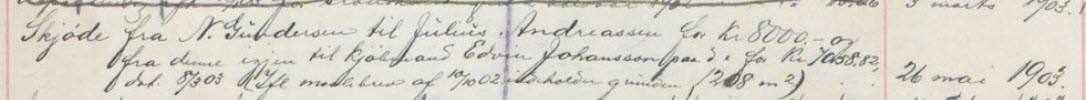 Skjøde fra N. Gundersen til Julius Andreassen for Kr 8000.- og
fra denne igjen til kjøbmand Edvin Johansson paa d: for Kr 7058,82,
dat. 8/5 03 (Ifl maalebrev af 10/10 02 indeholder grunden (208 m2) 26 mai 1903.